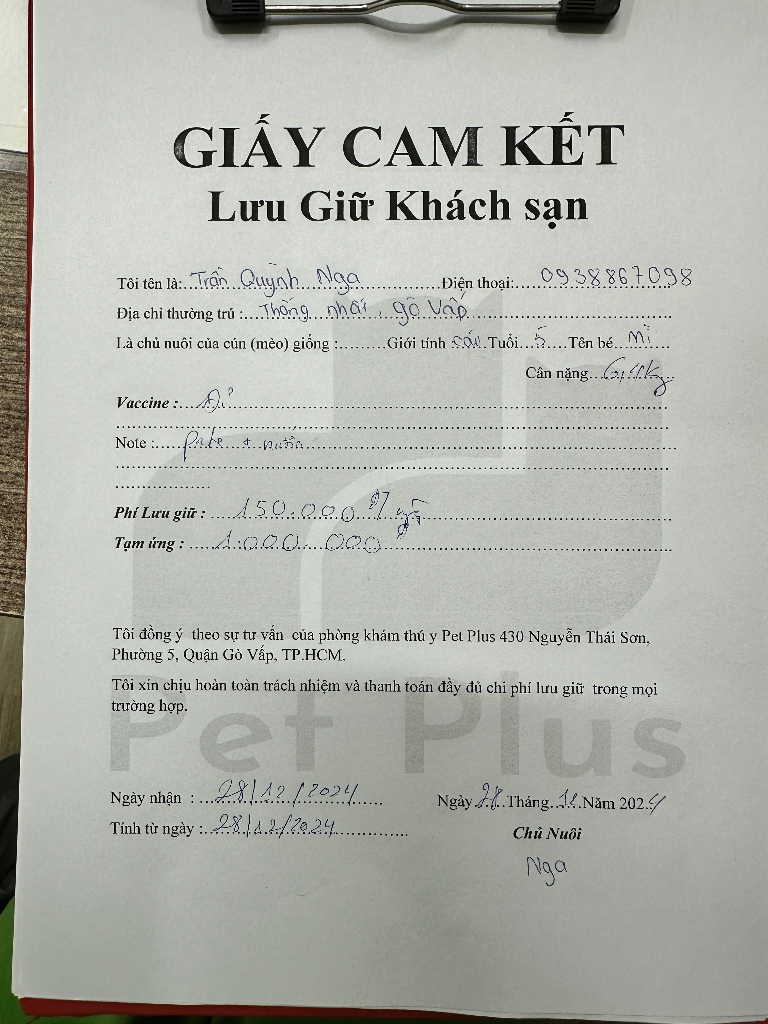 GIẤY CAM KẾT
Lưu Giữ Khách sạn
Tôi tên là: Trần Quỳnh Nga Điện thoại: 0938867098
Địa chỉ thường trú : Thống nhất, gò Vấp
Là chủ nuôi của cún (mèo) giống :......... Giới tính cái Tuổi 5 Tên bé Mi
Cân nặng
Vaccine :
Note : pate +
Phí Lưu giữ : 150.000 đ/
Tạm ứng : 1.000.000 đ
Tôi đồng ý theo sự tư vấn của phòng khám thú y Pet Plus 430 Nguyễn Thái Sơn,
Phường 5, Quận Gò Vấp, TP.HCM.
Tôi xin chịu hoàn toàn trách nhiệm và thanh toán đầy đủ chi phí lưu giữ trong mọi
trường hợp.
Pet Plus
Ngày nhận : 28/12/2024 Ngày 28 Tháng 12 Năm 2024
Tính từ ngày : 28/12/2024
Chủ Nuôi
Nga